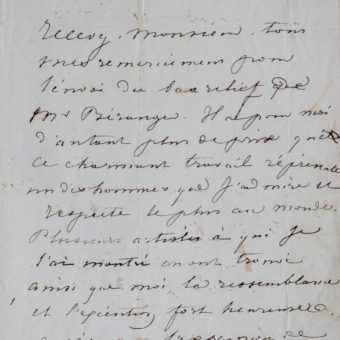 Recevez, Monsieur, tous
mes remerciemens pour
l'envoi du bas relief de
Mr Béranger. Il a pour moi
d'autant plus de prix que
ce charmant travail représente
un des hommes que j'admire et
respecte le plus au monde.
Plusieurs artistes à qui je
l'ai montré en ont trouvé
ainsi que moi, la ressemblance
et l'exécution fort heureuse
l'expression de